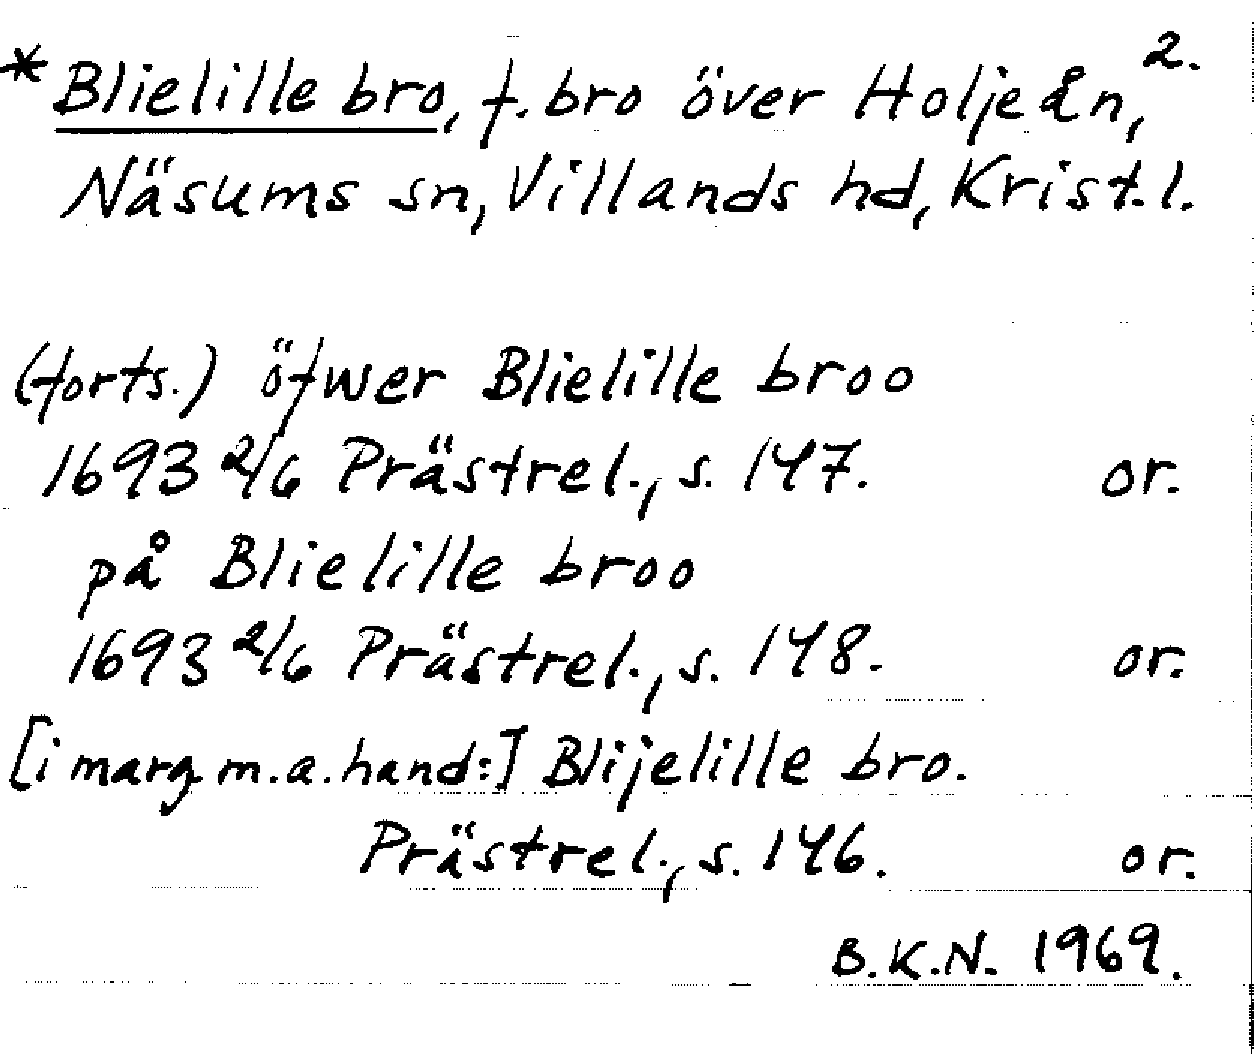 *Blielille bro, f. bro över Holjeån, 2.
Näsums sn, Villands hd, Krist. l.
(forts.) öfwer Blielille broo
1693 2/6 Prästrel., s. 147. or.
på Blielille broo
1693 2/6 Prästrel., s. 148. or.
[i marg. m. a. hand:] Blijelille bro.
Prästrel., s. 146. or.
B.K.N. 1969.